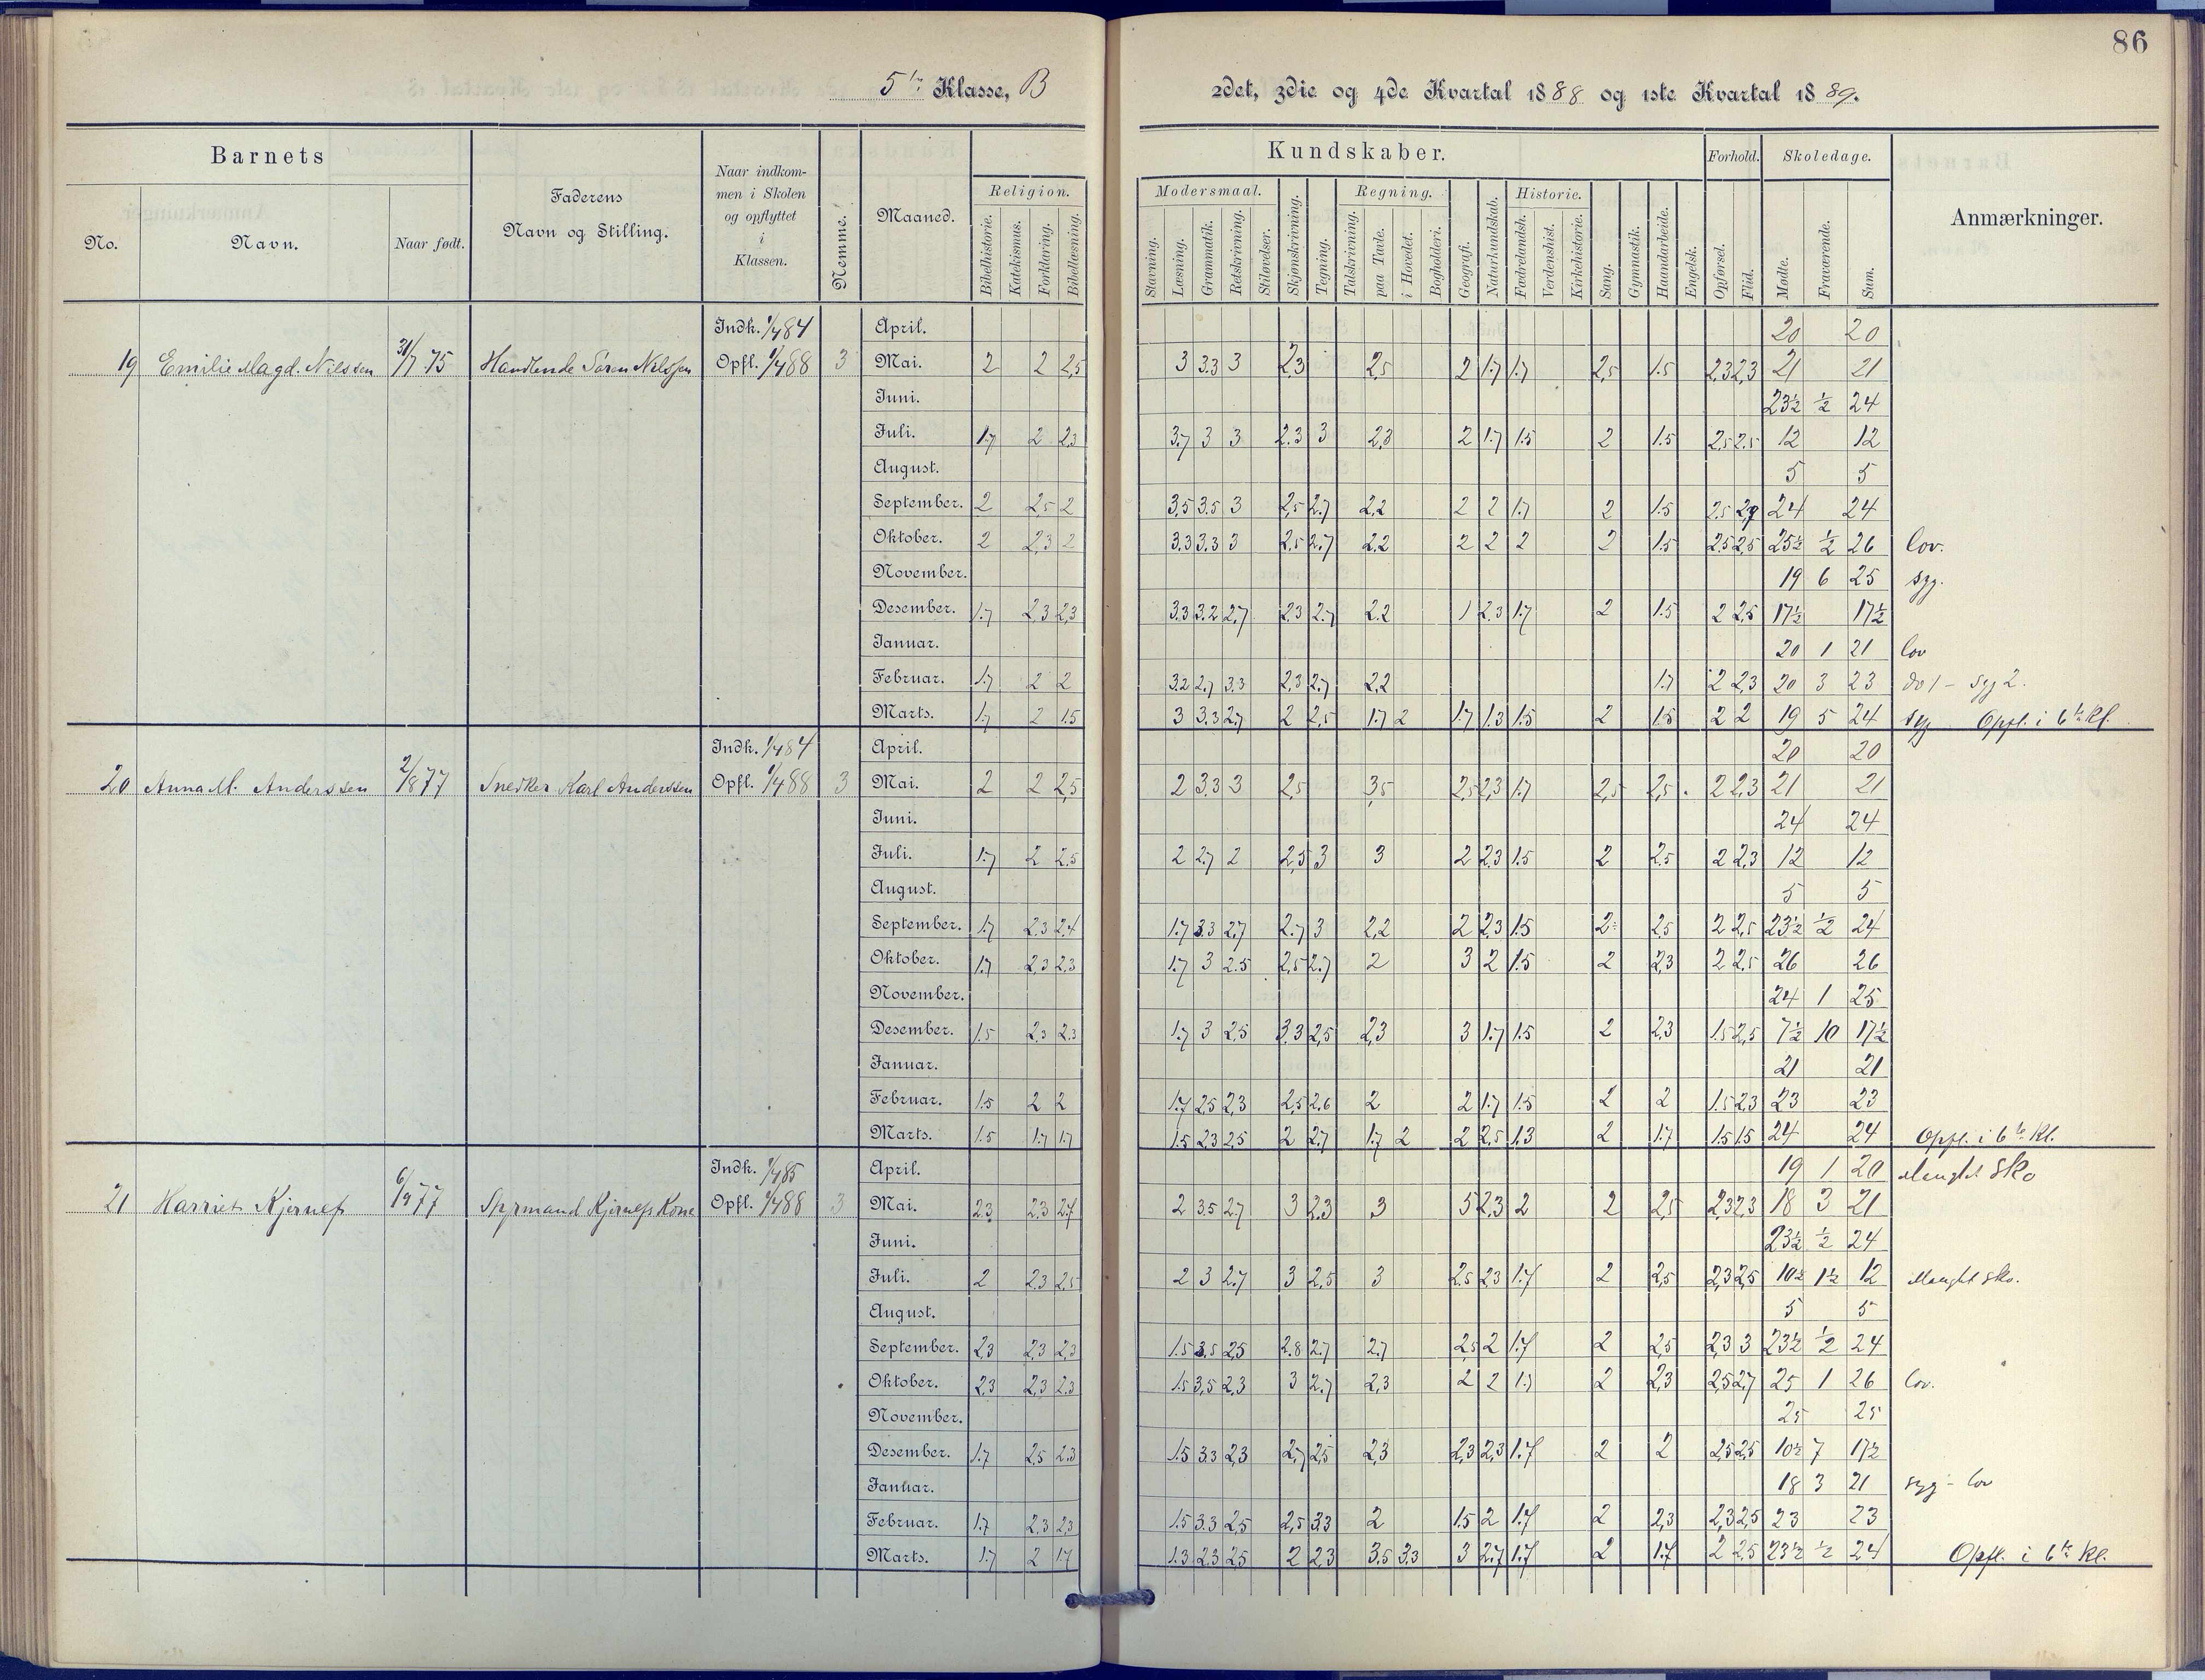 86
5te Klasse, B
2det, 3die og 4de Kvartal 1888 og 1ste Kvartal 1889.
Barnets
No.
Navn.
Naar født.
Faderens
Navn og Stilling.
Naar indkom-
men i Skolen
og opflyttet
i
Klassen.
Nemme.
Maaned.
Religion.
Bibelhistorie.
Katekismus.
Forklaring.
Bibellæsning.
Kundskaber.
Modersmaal.
Stavning.
Læsning.
Grammatik.
Retskrivning.
Stiløvelser.
Skjønskrivning.
Tegning.
Regning.
Talskrivning.
paa Tavle.
i Hovedet.
Bogholderi.
Geografi.
Naturkundskab.
Historie.
Fædrelandsh.
Verdenshist.
Kirkehistorie.
Sang.
Gymnastik.
Haandarbeide.
Engelsk.
Forhold.
Opførsel.
Flid.
Skoledage.
Mødte.
Fraværende.
Sum.
Anmærkninger.
Indk. 1/4 84 April. 20 20
19 Emilie Magd. Nilssen 31/7 75 Handlende Søren Nilssen Opfl. 1/4 88 3 Mai. 2 2 2,5 3 3.3 3 2,3 2,5 2 1.7 1.7 2,5 1.5 2,3 2,3 21 21
Juni. 23½ ½ 24
Juli. 1.7 2 2,3 3.7 3 3 2.3 3 2,3 2 1.7 1.5 2 1.5 2,5 2.5 12 12
August. 5 5
September. 2 2,5 2 3,5 3.5 3 2,5 2.7 2,2 2 2 1.7 2 1.5 2.5 24 24
Oktober. 2 2,3 2 3.3 3.3 3 2,5 2.7 2.2 2 2 2 2 1.5 2,5 2,5 25½ ½ 26 lov.
November. 19 6 25 syg.
Desember. 1.7 2,3 2,3 3.3 3.2 2,7 2,3 2.7 2.2 1 2.3 1.7 2 1.5 2 2,5 17½ 17½
Januar. 20 1 21 lov
Februar. 1.7 2 2 3.2 2.7 3.3 2,3 2.7 2,2 1.7 2 2,3 20 3 23 do 1 - syg 2.
Marts. 1.7 2 1.5 3 3.3 2.7 2 2,5 1.7 2 1.7 1.3 1.5 2 1.5 2 2 19 5 24 syg Opfl. i 6te Kl.
Indk. 1/4 84 April. 20 20
20 Anna M. Anderssen 2/8 77 Snedker Karl Anderssen Opfl. 1/4 88 3 Mai. 2 2 2,5 2 3,3 3 2,5 3,5 2,5 2,3 1.7 2,5 2,5 2 2,3 21 21
Juni. 24 24
Juli. 1.7 2 2.5 2 2.7 2 2,5 3 3 2 2.3 1.5 2 2.5 2 2,3 12 12
August. 5 5
September. 1.7 2.3 2,4 1.7 3.3 2,7 2.7 3 2,2 2 2,3 1.5 2 2.5 2 2,5 23½ ½ 24
Oktober. 1.7 2,3 2,3 1.7 3 2.5 2,5 2.7 2 3 2 1.5 2 2,3 2 2,5 26 26
November. 24 1 25
Desember. 1.5 2,3 2.3 1.7 3 2,5 3.3 2,5 2,3 3 1.7 1.5 2 2,3 1.5 2,5 7½ 10 17½
Januar. 21 21
Februar. 1.5 2 2 1.7 2,5 2,3 2,5 2.6 2 2 1.7 1.5 2 2 1.5 2,3 23 23
Marts. 1.5 1.7 1.7 1.5 2.3 2,5 2 2.7 1.7 2 2 2,5 1.3 2 1.7 1.5 1.5 24 24 Opfl. i 6te Kl.
Indk. 1/4 85 April. 19 1 20 Manglet Sko
21 Harriet Kjørnes 6/9 77 Styrmand Kjørnes Kone Opfl. 1/4 88 3 Mai. 2.3 2.3 2.7 2 3.5 2.7 3 2.3 3 5 2,3 2 2 2,5 2,3 2,3 18 3 21
Juni. 23½ ½ 24
Juli. 2 2.3 2.5 2 3 2.7 3 2,5 3 2.5 2.3 1.7 2 2,5 2,3 2,5 10½ 1½ 12 Manglet Sko.
August. 5 5
September. 2,3 2,3 2,3 1.5 3.5 2.5 2.8 2.7 2.7 2.5 2 1.7 2 2,5 2,3 3 23½ ½ 24
Oktober. 2,3 2,3 2.3 1.5 3,5 2,3 3 2.7 2,3 2 2 1.7 2 2,3 2,5 2,7 25 1 26 lov.
November. 25 25
Desember. 1.7 2,5 2.3 1.5 3.3 2,3 2,7 2,5 2,3 2,3 2,3 1.7 2 2 2,5 2,5 10½ 7 17½
Januar. 18 3 21 syg - lov
Februar. 1.7 2,3 2,3 1.5 3.3 2,5 2,5 3.3 2 1.5 2 1.7 2 2,3 2,3 2,5 23 23
Marts. 1.7 2 1.7 1.3 2.3 2.5 2 2,3 3,5 3,3 3 2.7 1.7 2 1.7 2 2,5 23½ ½ 24 Opfl. i 6te Kl.